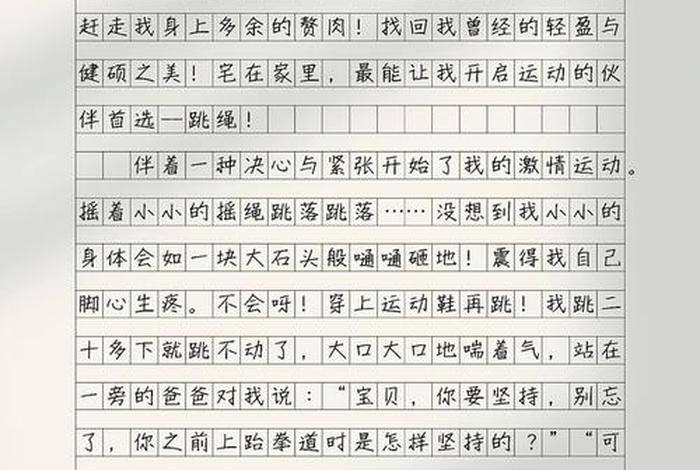 赶走我身上多余的赘肉！找回我曾经的轻盈与
健硕之美！宅在家里，最能让我开启运动的伙
伴首选一跳绳！
伴着一种决心与紧张开始了我的激情运动。
摇着小小的摇绳跳落跳落……没想到我小小的
身体会如一块大石头般嗵嗵砸地！震得我自己
脚心生疼。不会呀！穿上运动鞋再跳！我跳二
十多下就跳不动了，大口大口地喘着气，站在
一旁的爸爸对我说：“宝贝，你要坚持，别忘
了，你之前上跆拳道时是怎样坚持的？”“可